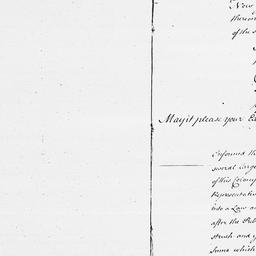 New
therein
of the
May it please your
Informed th
several large
of this Colony
Representative
into a Law a
after the Pub
struck and
Sums which